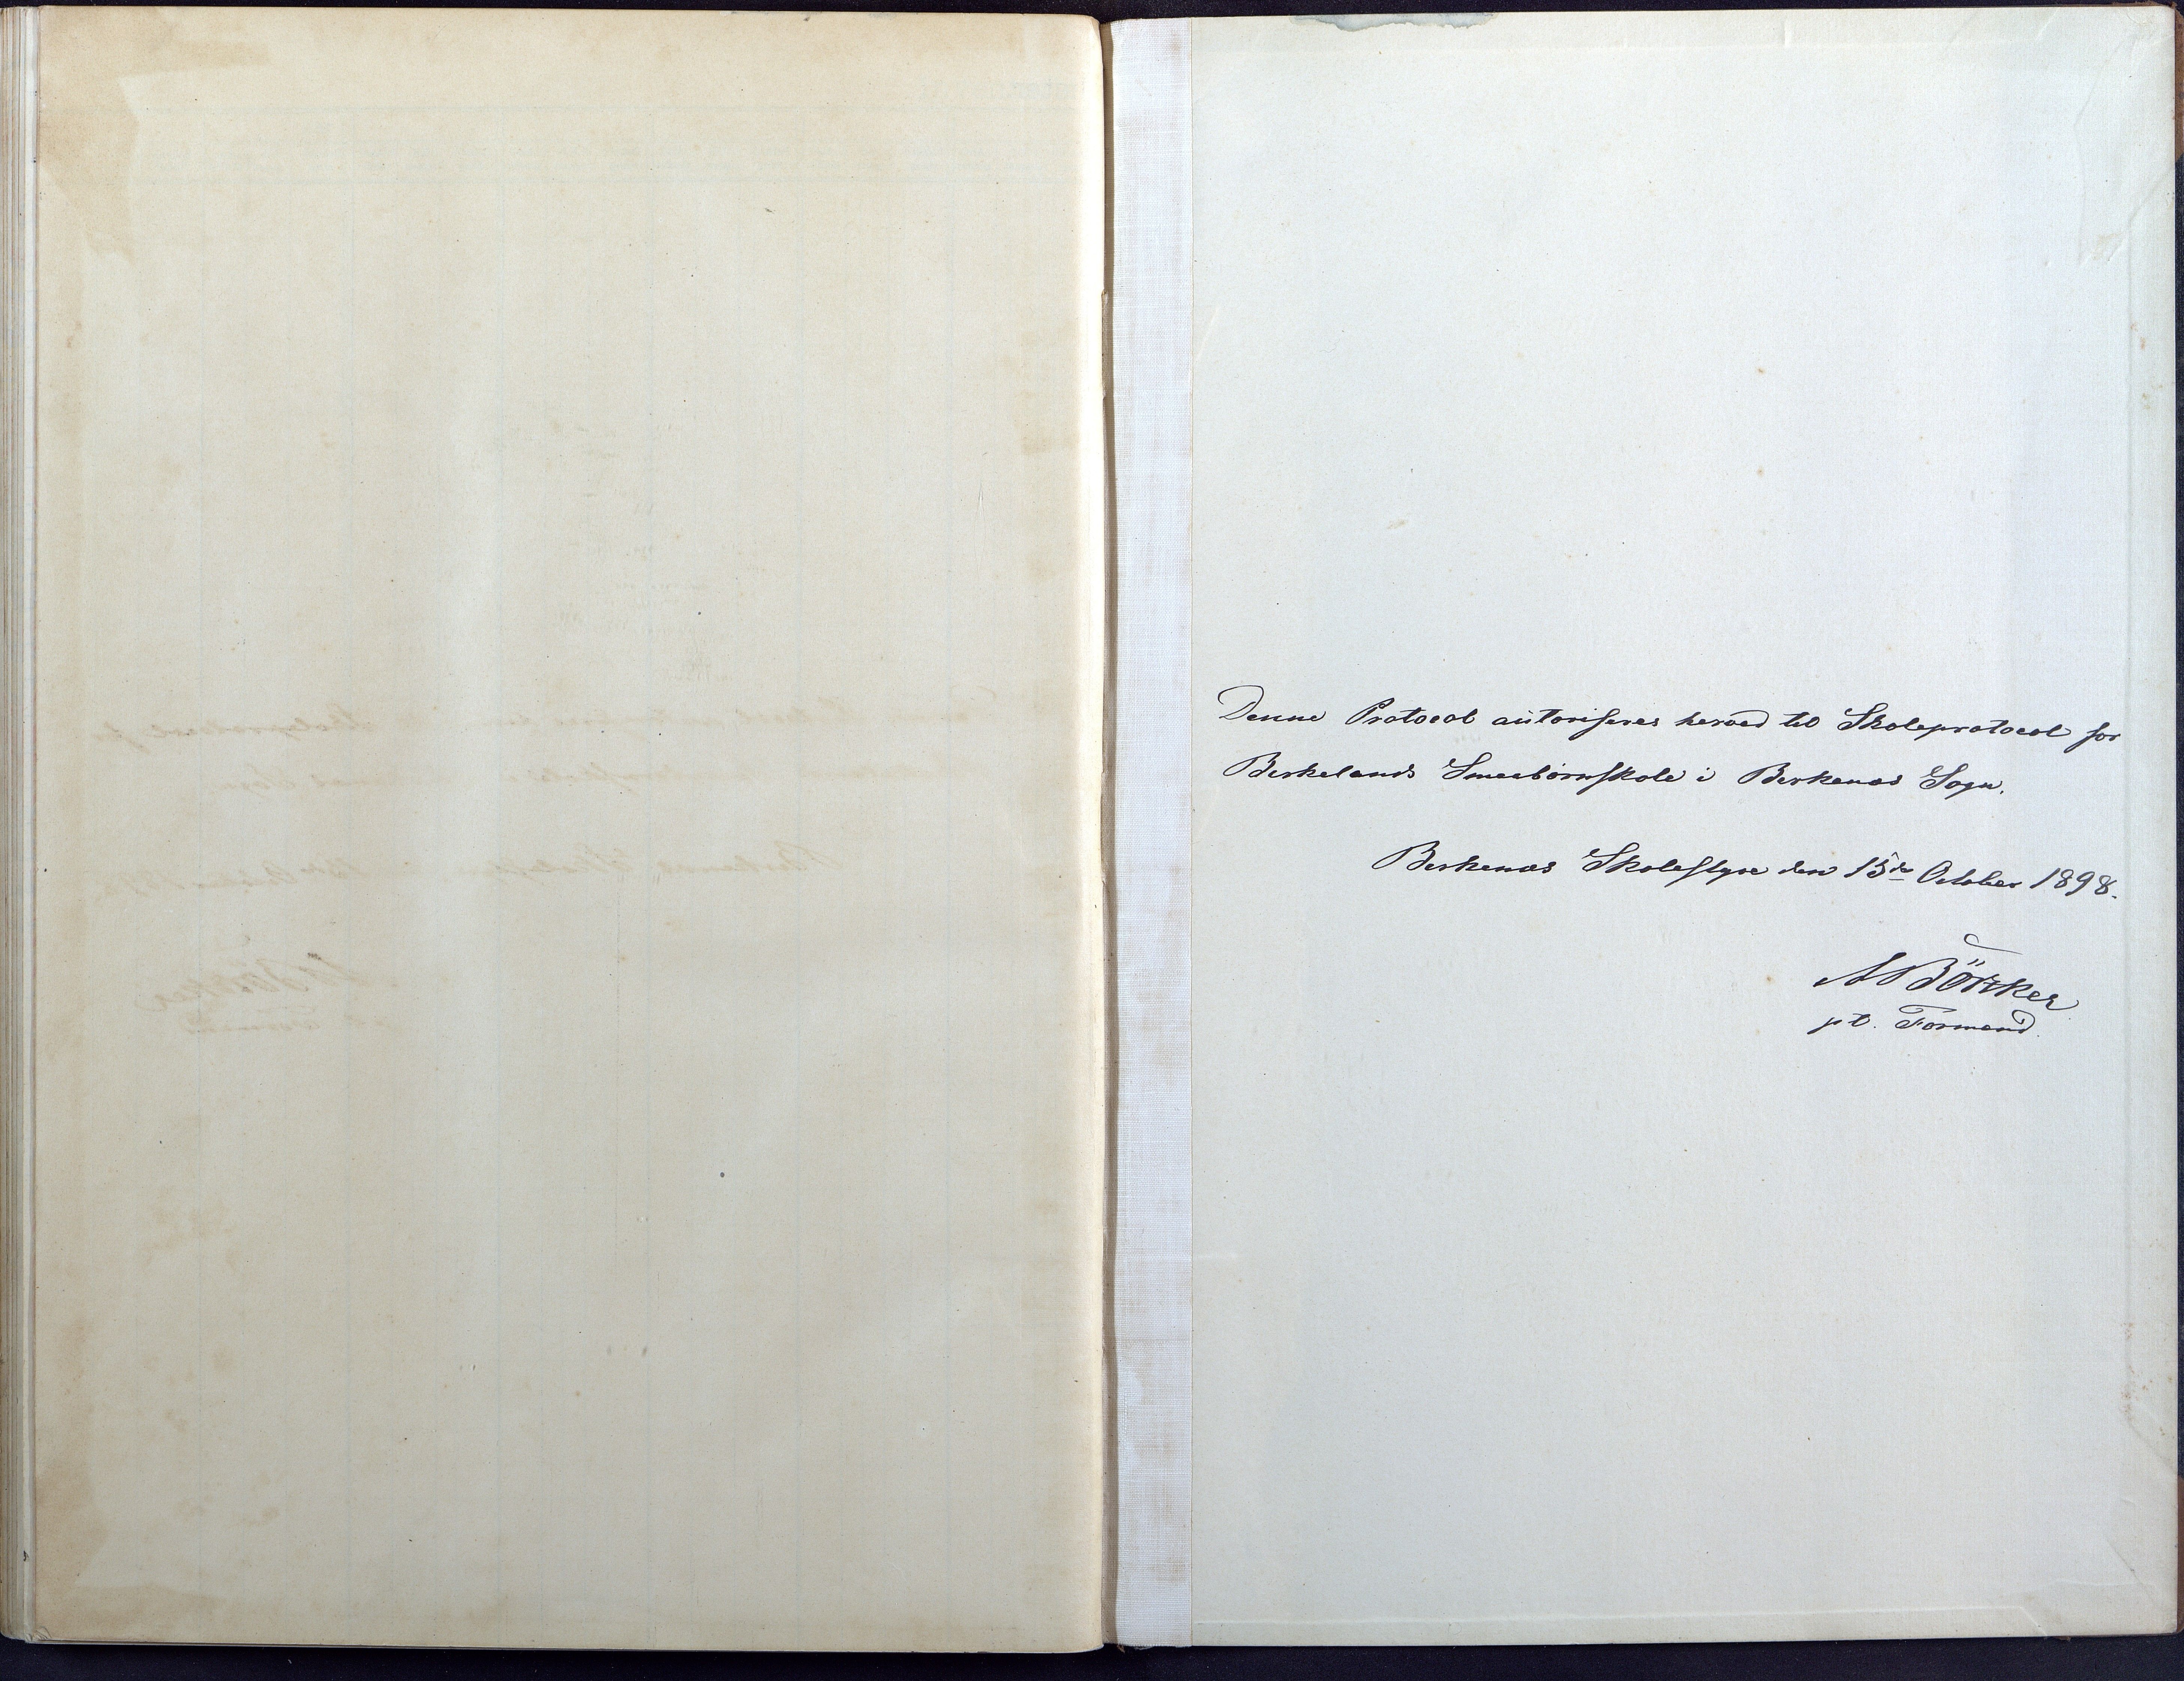 Denne Protocol aütoriseres herved til Skoleprotocol for
Birkelands Smaabørnskole i Birkenes Sogn.
Birkenes Skolestyre den 15de October 1898.
A Börker
pt. Formand.